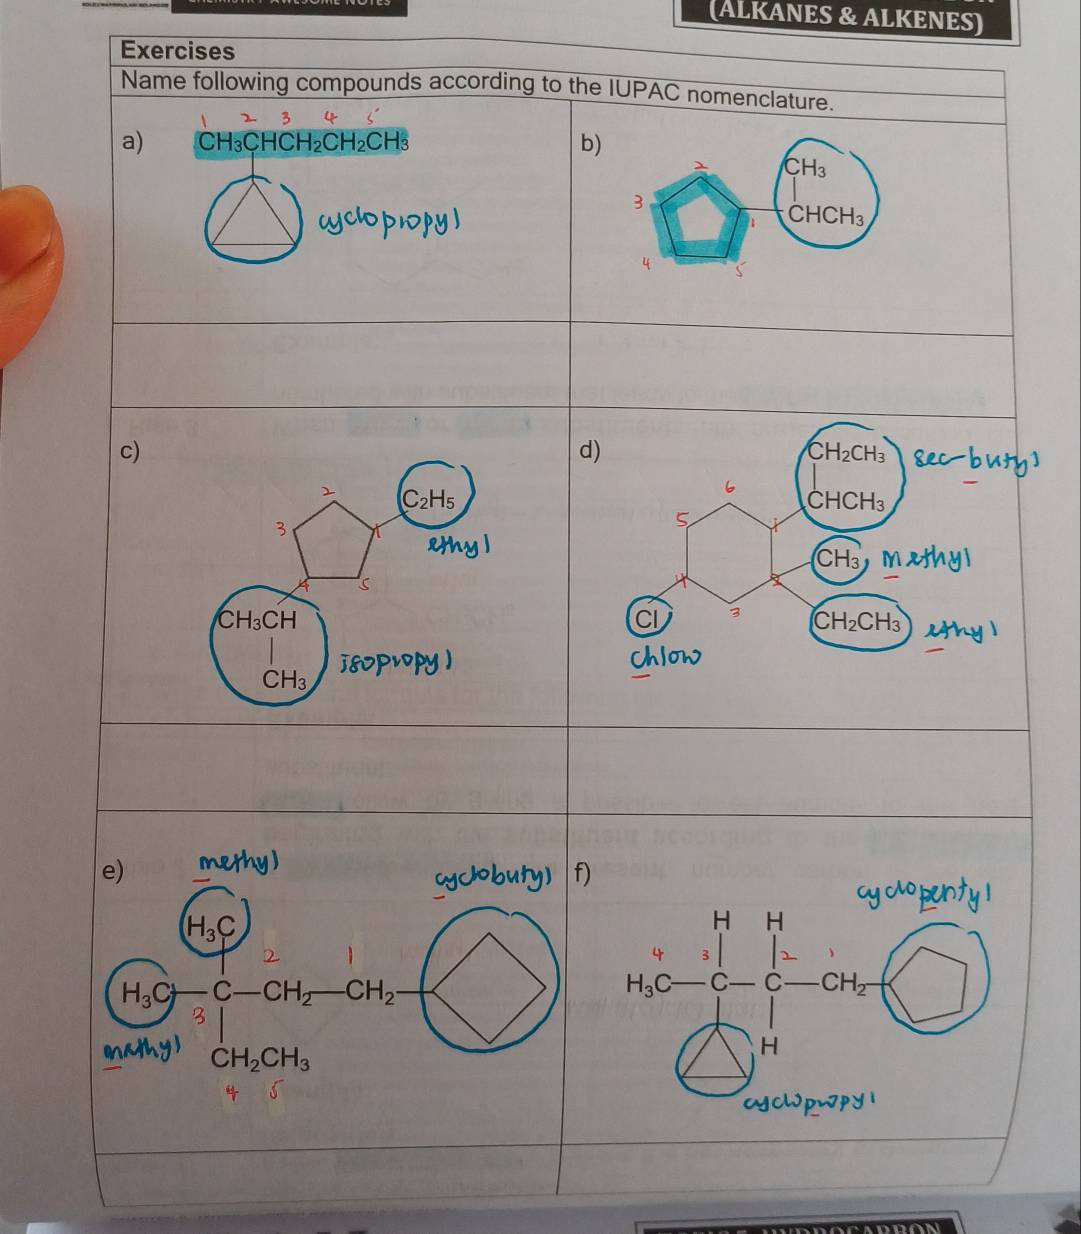 (ALKANES & ALKENES)
Exercises
Name following compounds according to the IUPAC nomenclature.
a)
1 2 3 4 5
CH₃CHCH₂CH₂CH₃
cyclopropyl
b)
CH₃
CHCH₃
2
3
1
4
5
c)
C₂H₅
ethyl
2
3
1
4
5
CH₃CH
CH₃
isopropyl
d)
CH₂CH₃
sec-butyl
CHCH₃
6
5
1
CH₃, methyl
4
2
3
Cl
CH₂CH₃ ethyl
chloro
e)
methyl
cyclobutyl
H₃C
2 1
H₃C—C—CH₂—CH₂
3
methyl
CH₂CH₃
4 5
f)
cyclopentyl
H H
4 3 2 1
H₃C—C—C—CH₂
H
cyclopropyl